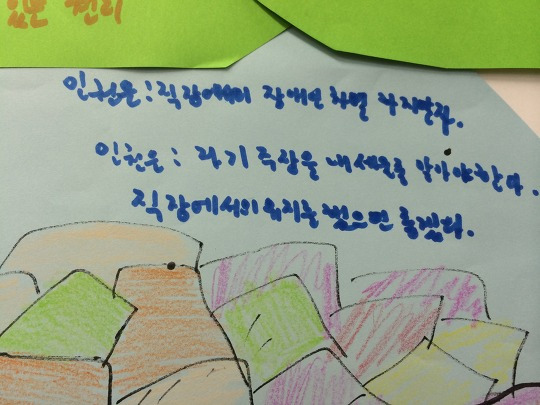 인권은: 직장에서의 장애인 차별 하지말자.
인권은: 자기 주장을 내세울 줄 알아야한다.
직장에서의 위치는 있으면 좋겠다.